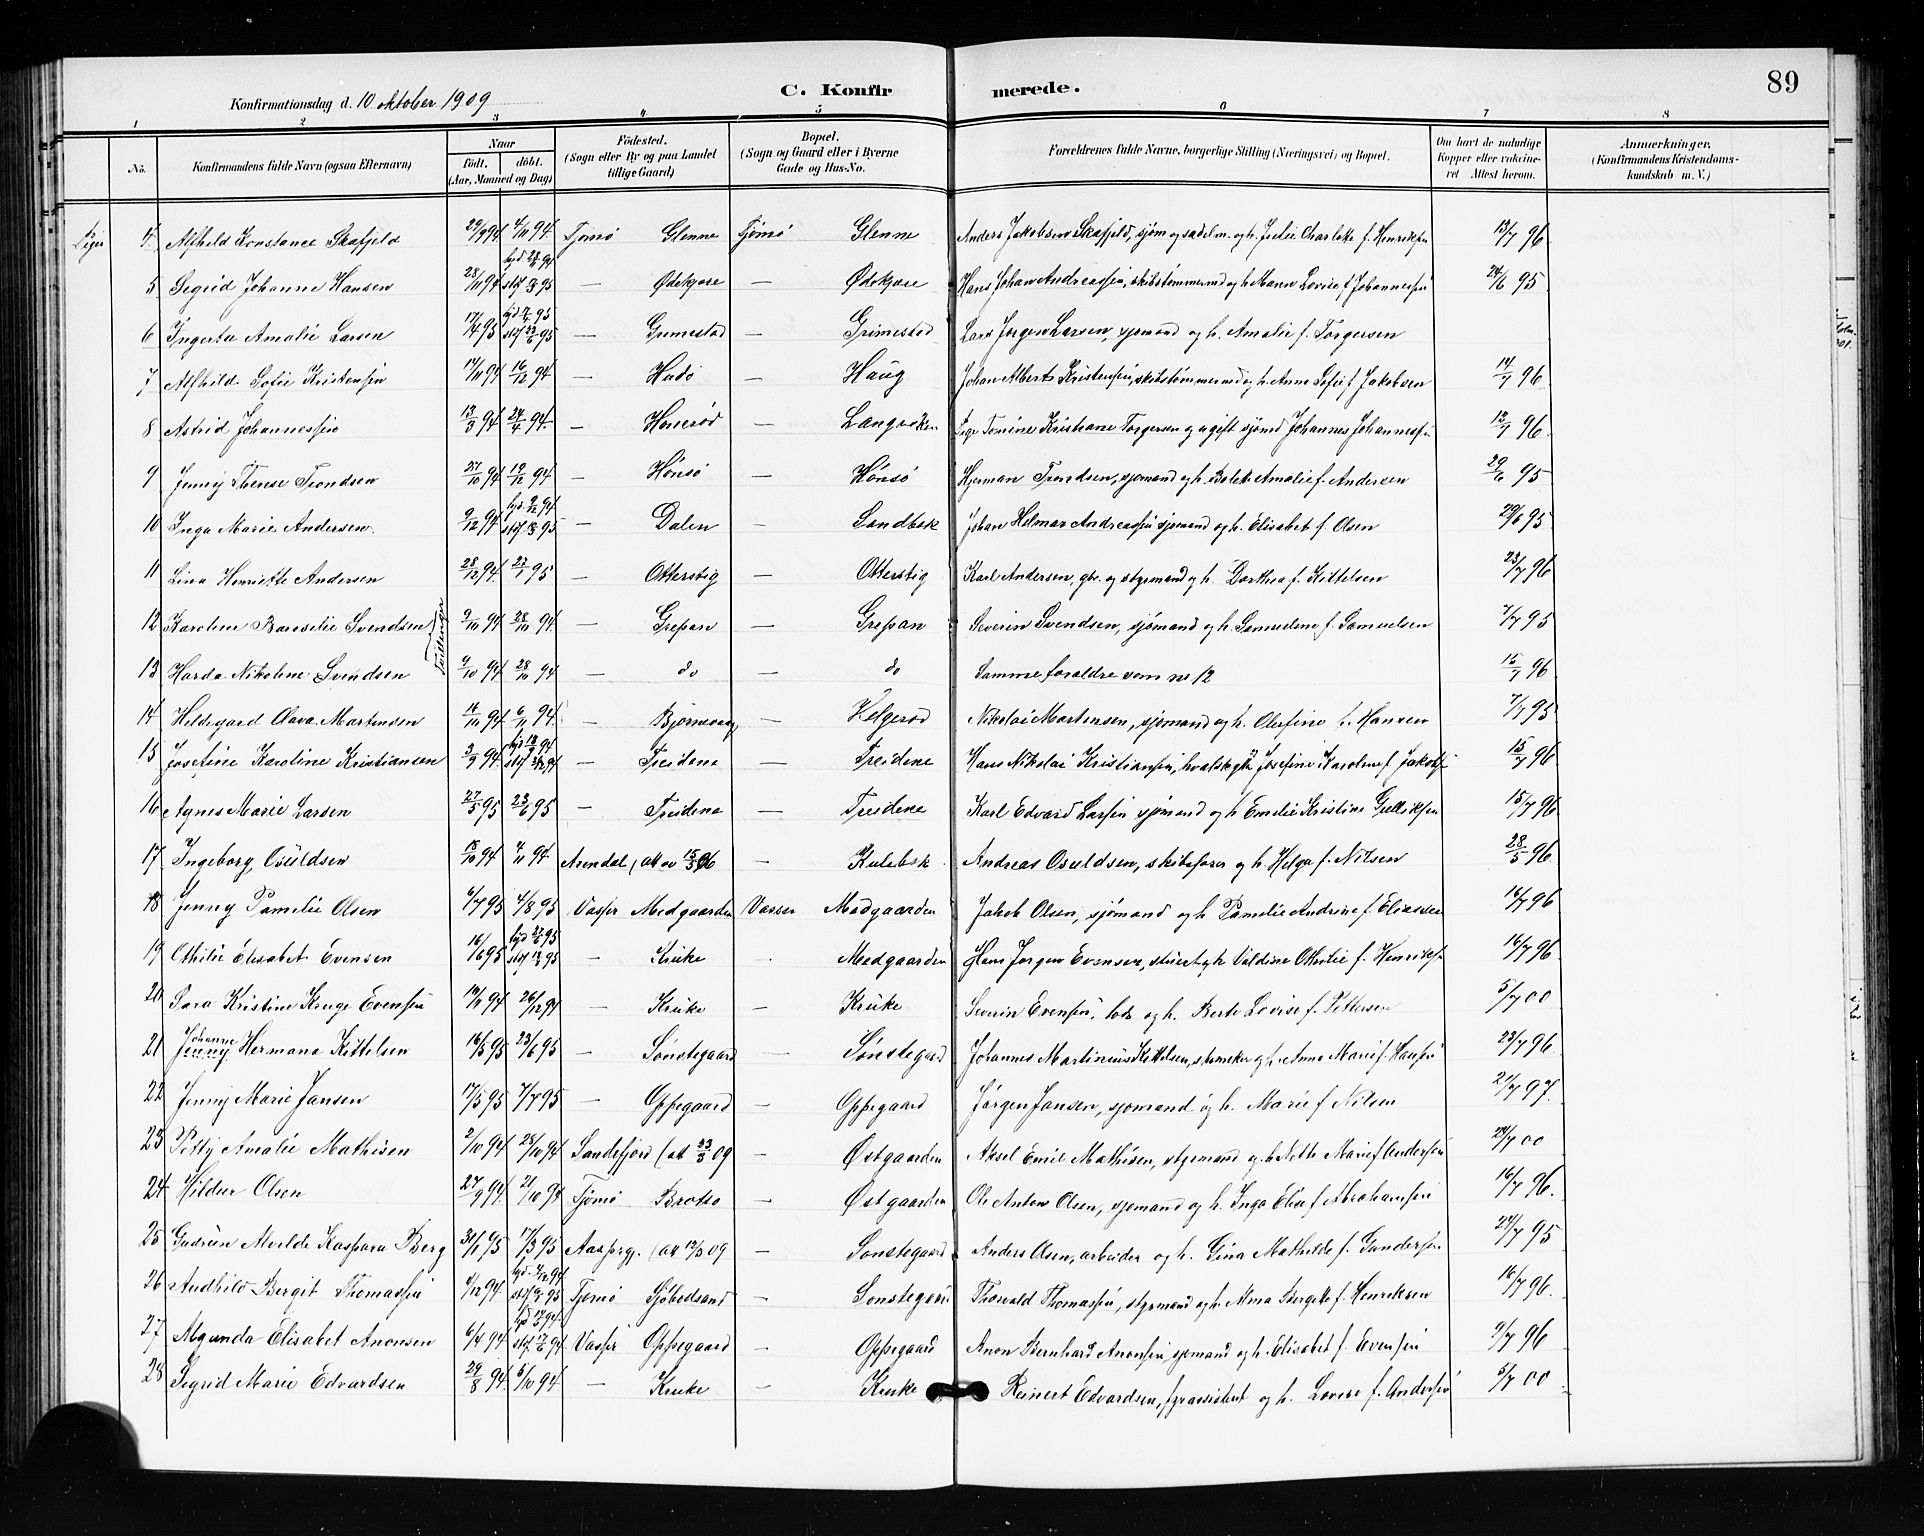 89
Konfirmationsdag d. 10 oktober 1909 C. Konfirmerede.
1 2 3 4 5 6 7 8
No. Konfirmandens fulde Navn (ogsaa Efternavn) Naar født. døbt. (Aar, Maaned og Dag) Fødested. (Sogn eller By og paa Landet tillige Gaard) Bopæl. (Sogn og Gaard eller i Byerne Gade og Hus-No. Forældrenes fulde Navne, borgerlige Stilling (Næringsvei) og Bopæl. Om havt de naturlige Kopper eller vaccineret Attest herom. Anmærkninger. (Konfirmandens Kristendomskundskab m. V.)
Piger 4 Alfhild Konstance Skafjeld 29/9 94 4/11 94 Tjømø Glenne Tjømø Glenne Anders Jakobsen Skafjeld, sjøm og sadelm. og h. Julie Charlotte f. Henriksen 13/7 96
5 Sigrid Johanne Hansen 28/11 94 — Ødekjøre — Ødekjøre Hans Johan Andreassen, skibstømmermd og h Maren Lovise f Johannessen 24/6 95
6 Ingerta Amalie Larsen 17/4 95 — Grimestad — Grimestad Lars Jørgen Larsen, sjømand og h. Amalie f. Torgersen
7 Alfhild Sofie Kristensen 14/11 94 16/12 94 — Hudø — Haug Johan Albert Kristensen, skibstømmermd og h. Anne Sofie f Jakobsen 14/7 96
8 Astrid Johannessen 13/3 94 24/4 94 — Honerød — Langviken Pige Tomine Kristiane Torgersen og ugift sjømd Johannes Johannessen 13/7 96
9 Jenny Therese Trondsen 27/10 94 19/12 94 — Hønsø — Hønsø Hjerman Trondsen, sjømand og h. Bolete Amalie f. Andersen 29/6 95
10 Inga Marie Andersen 9/12 94 — Dalen — Sandbek Johan Helmar Andreassen sjømand og h. Elisabet f. Olsen 29/6 95
11 Lina Henriette Andersen 28/12 94 27/1 95 — Otterstig — Otterstig Karl Andersen, gbr. og styrmand og h. Dorthea f. Kittelsen 23/7 96
12 Karoline Bareselie Svendsen Tvillinger 9/10 94 28/10 94 — Grepan — Grepan Severin Svendsen, sjømand og h. Samueline f. Samuelsen 7/7 95
13 Harda Nikoline Svendsen 9/10 94 28/10 94 — do — do Samme foraldre som no 12 15/7 96
14 Hildegard Olava Martensen 14/10 94 6/11 94 — Bjørnevaag — Helgerød Nikolai Martensen, sjømand og h. Olefine f. Hansen 7/7 95
15 Josefine Karoline Kristiansen 3/9 94 — Treidene — Treidene Hans Nikolai Kristiansen, hvalskytter Josefine Karoline f Jakobsen 15/7 96
16 Agnes Marie Larsen 27/5 95 23/6 95 — Treidene — Treidene Karl Edvard Larsen sjømand og h Emelie Kristine Gulliksen 15/7 96
17 Ingeborg Osuldsen 15/10 94 4/11 94 Arendal (att av 15/3 06 — Kulebek Andreas Osuldsen, skibsfører og h. Helga f. Nilsen 28/5 96
18 Jenny Pamelie Olsen 6/7 95 4/8 95 Vasser Medgaarden Vasser Medgaarden Jakob Olsen, sjømand og h Pamelie Andrine f. Eliassen 16/7 96
19 Othilie Elisabet Evensen 16/1 95 — Kruke Medgaarden Hans Jørgen Evensen, stuert og h Valdine Othilie f. Henriksen 16/7 96
20 Sara Kristine Kruge Evensen 19/11 94 26/12 94 — Kruke — Kruke Severin Evensen, lods og h. Berte Lovise f. Pettersen 5/7 00
21 Johanne Jenny Hermana Kittelsen 16/5 95 23/6 95 — Sønstegaard — Sønstegaard Johannes Martinius Kittelsen, skomaker og h. Anne Marie f. Hansen 23/7 96
22 Jenny Marie Jansen 17/5 95 7/7 95 — Oppegaard — Oppegaard Jørgen Jansen, sjømand og h. Marie f Nilsen 21/7 97
23 Petty Amalie Mathisen 2/10 94 28/10 94 Sandefjord (at 23/3 09 — Østgaarden Aksel Emil Mathisen, styrmand og h Nette Marie f Andersen 24/7 00
24 Hildur Olsen 27/9 94 21/10 94 Tjømø Brotsø — Østgaarden Ole Anton Olsen, sjømand og h. Inga Elisa f Abrahamsen 16/7 96.
25 Gudrun Alvilde Kaspara Berg 31/1 95 17/3 95 Aasprg. (at 12/3 09 — Sønstegaard Anders Olsen, arbeider og h. Gina Mathilde f. Gundersen 24/7 95
26 Audhild Bergit Thomassen 4/12 94 Tjømø Sjøbodsand — Sønstegaard Thorvald Thomassen, styrmand og h. Alma Bergitte f. Henriksen 16/7 96.
27 Algunda Elisabet Anonsen 6/4 94 Vasser Oppegaard Oppegaard Anon Bernhard Anonsen sjømand og h. Elisabet f. Evensen 9/7 96
28 Sigrid Marie Edvardsen 29/8 94 5/10 94 — Kruke — Kruke Reinert Edvardsen, fyrassistent og h. Lovise f. Andersen 5/7 00